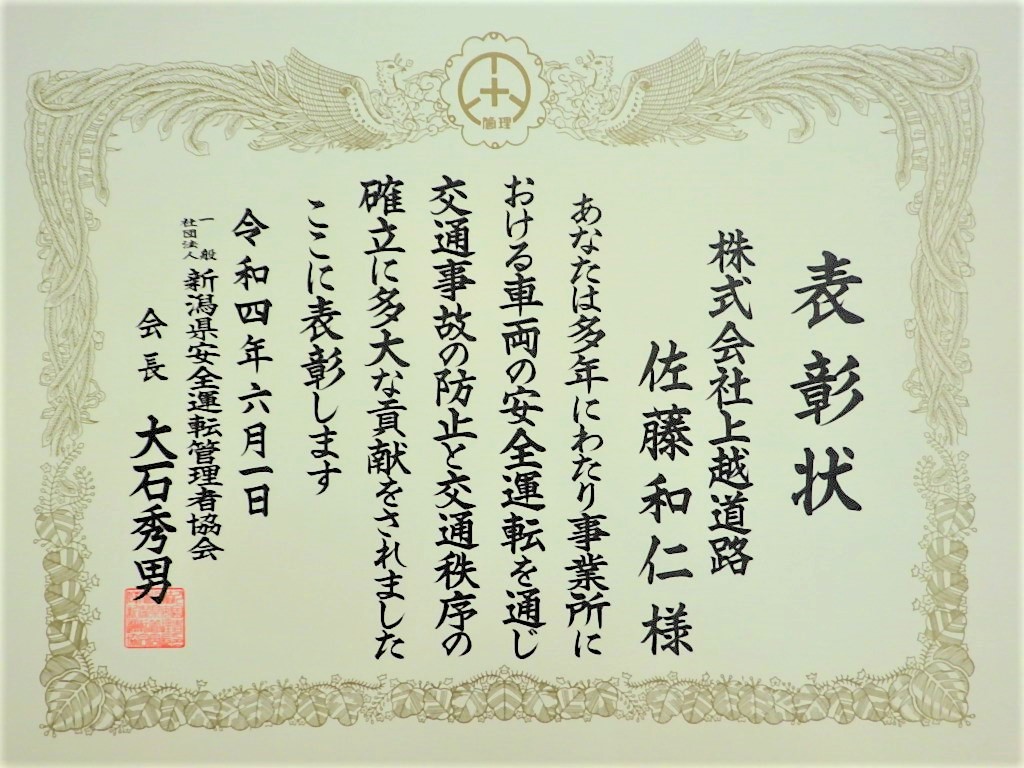 管理
表彰状
株式会社上越道路
佐藤和仁様
あなたは多年にわたり事業所に
おける車両の安全運転を通じ
交通事故の防止と交通秩序の
確立に多大な貢献をされました
ここに表彰します
令和四年六月一日
一般社団法人 新潟県安全運転管理者協会
会長 大石秀男